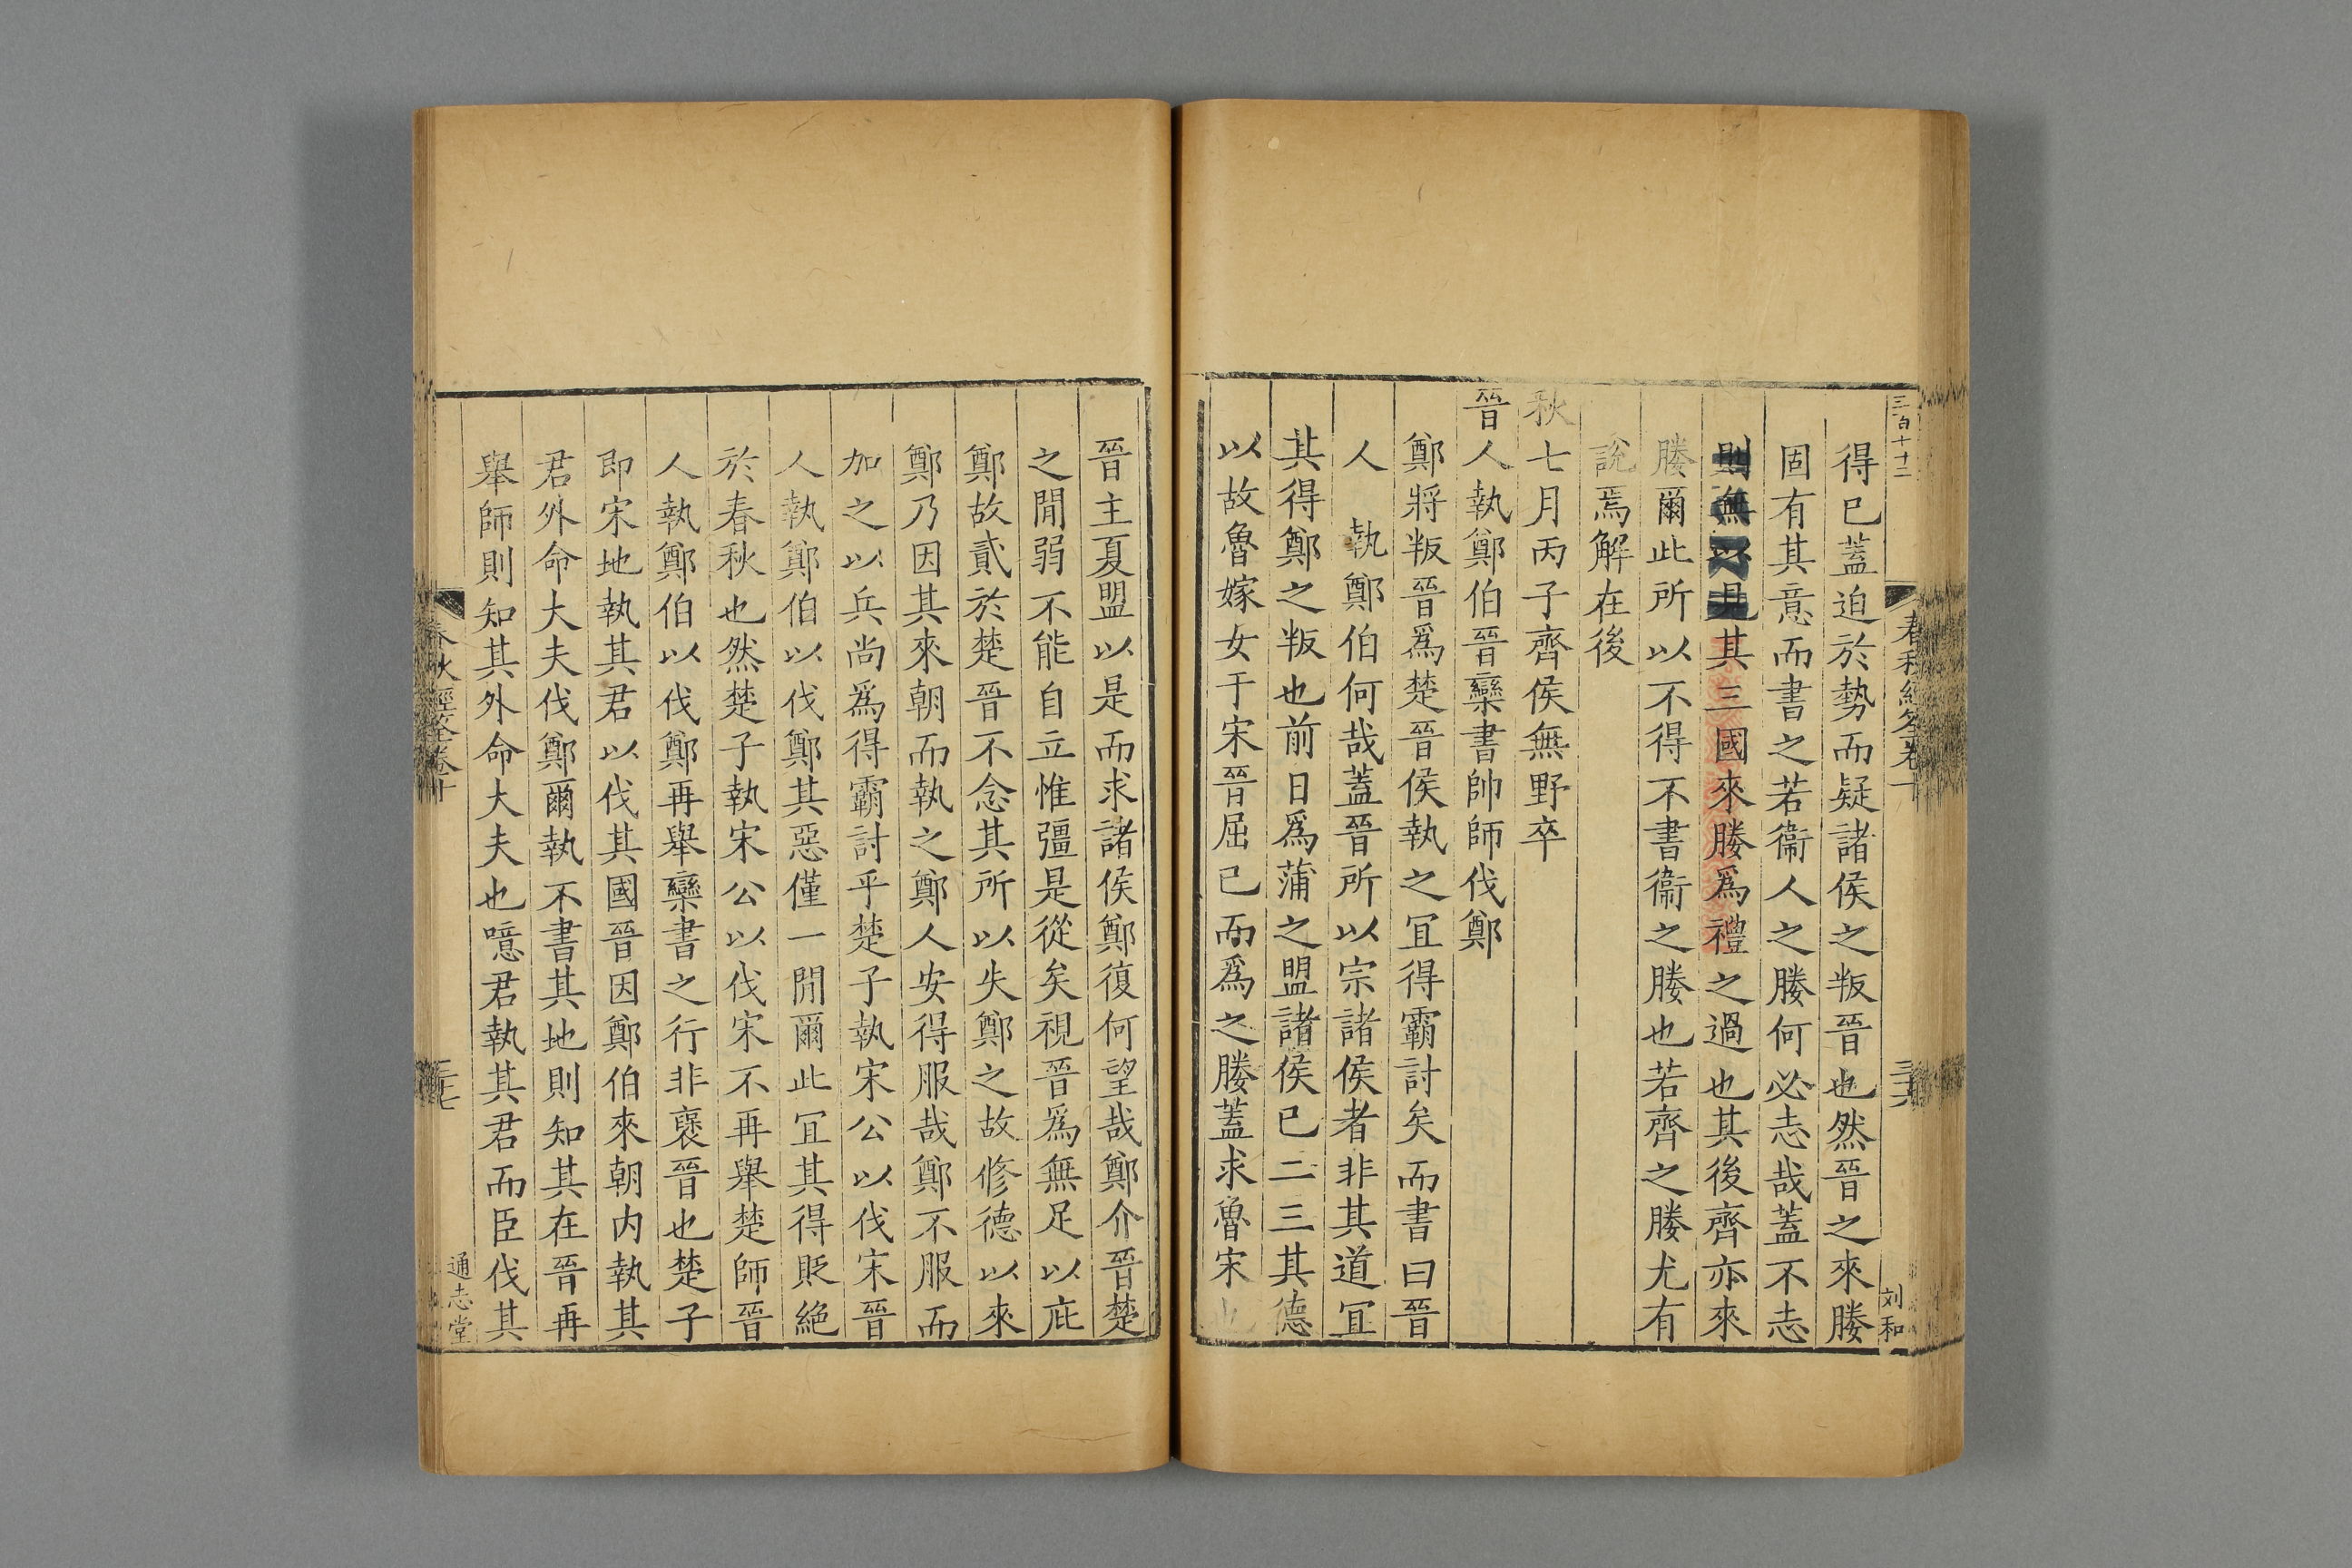 三百十十二
春秋經筌卷十
三六
刘和
得已蓋迫於勢而疑諸侯之叛晉也然晉之來媵
固有其意而書之若衞人之媵何必志哉蓋不志
則無以見其三國來媵爲禮之過也其後齊亦來
媵爾此所以不得不書衞之媵也若齊之媵尤有
說焉解在後
秋七月丙子齊侯無野卒
晉人執鄭伯晉欒書帥師伐鄭
鄭將叛晉爲楚晉侯執之冝得霸討矣而書曰晉
人執鄭伯何哉蓋晉所以宗諸侯者非其道冝
其得鄭之叛也前日爲蒲之盟諸侯已二三其德
以故魯嫁女于宋晉屈已而爲之媵蓋求魯宋也
晉主夏盟以是而求諸侯鄭復何望哉鄭介晉楚
之閒弱不能自立惟彊是從矣視晉爲無足以庇
鄭故貳於楚晉不念其所以失鄭之故修德以來
鄭乃因其來朝而執之鄭人安得服哉鄭不服而
加之以兵尚爲得霸討乎楚子執宋公以伐宋晉
人執鄭伯以伐鄭其惡僅一閒爾此冝其得貶絕
於春秋也然楚子執宋公以伐宋不再舉楚師晉
人執鄭伯以伐鄭再舉欒書之行非褒晉也楚子
即宋地執其君以伐其國晉因鄭伯來朝内執其
君外命大夫伐鄭爾執不書其地則知其在晉再
舉師則知其外命大夫也噫君執其君而臣伐其
春秋經筌卷十
三七
通志堂